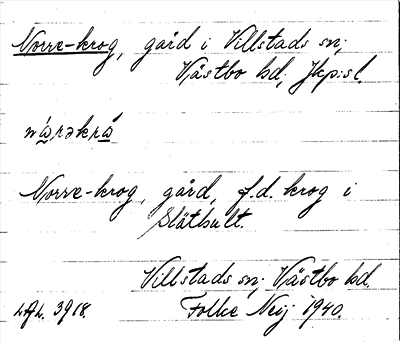 Norre-krog, gård i Villstads sn;
Västbo hd; Jkp:sl.
nárəkrá
Norre-krog, gård, f.d. krog i
Släthult.
Villstads sn; Västbo hd.
Folke Neij 1940.
LAL. 3918.